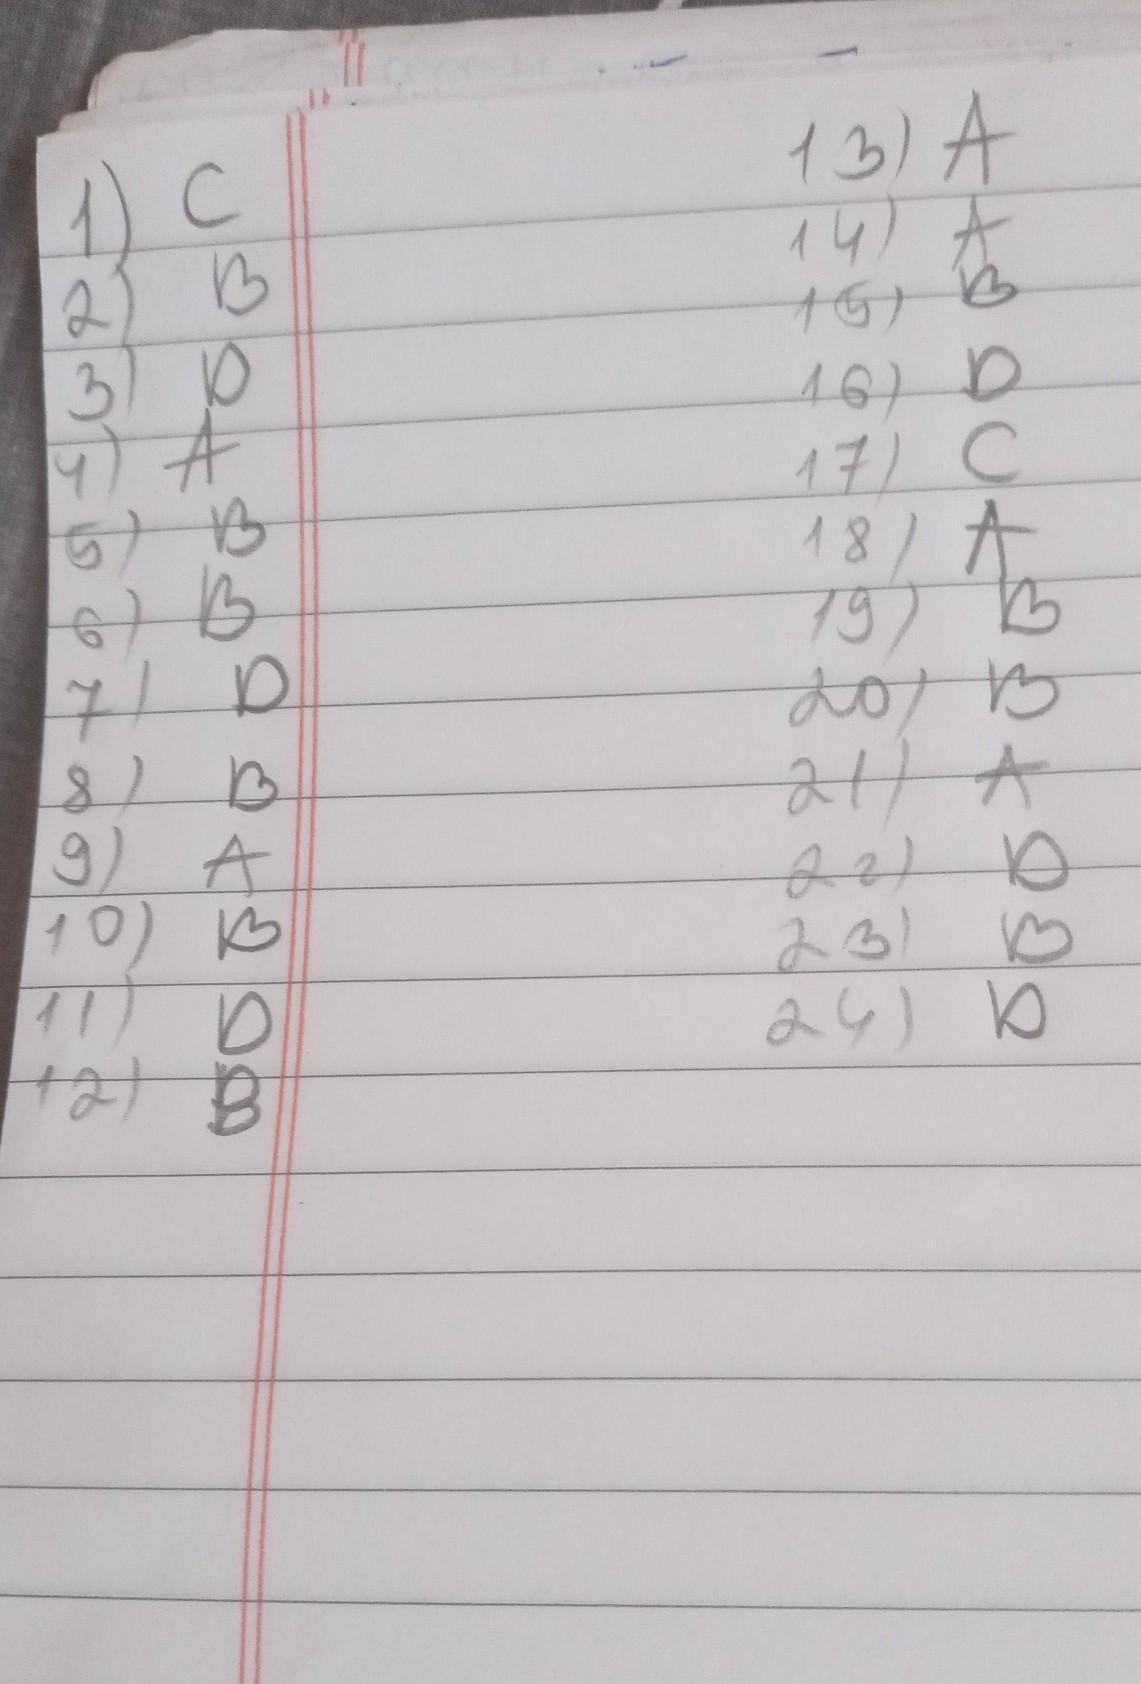 1) C
2) B
3) D
4) A
5) B
6) B
7) D
8) B
9) A
10) B
11) D
12) B
13) A
14) A
15) B
16) D
17) C
18) A
19) B
20) B
21) A
22) D
23) B
24) D